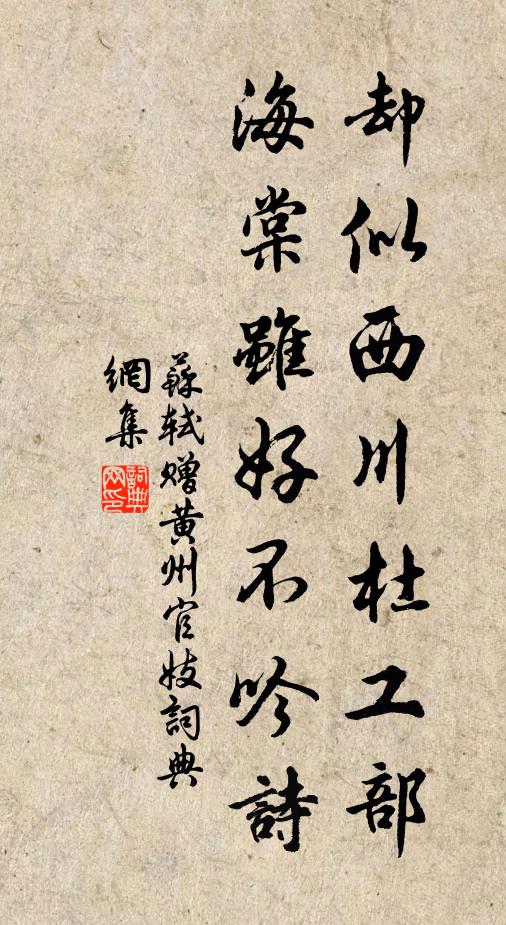 却似西川杜工部
海棠雖好不吟詩
蘇軾贈黃州官妓詞典
網集
詞典
网印